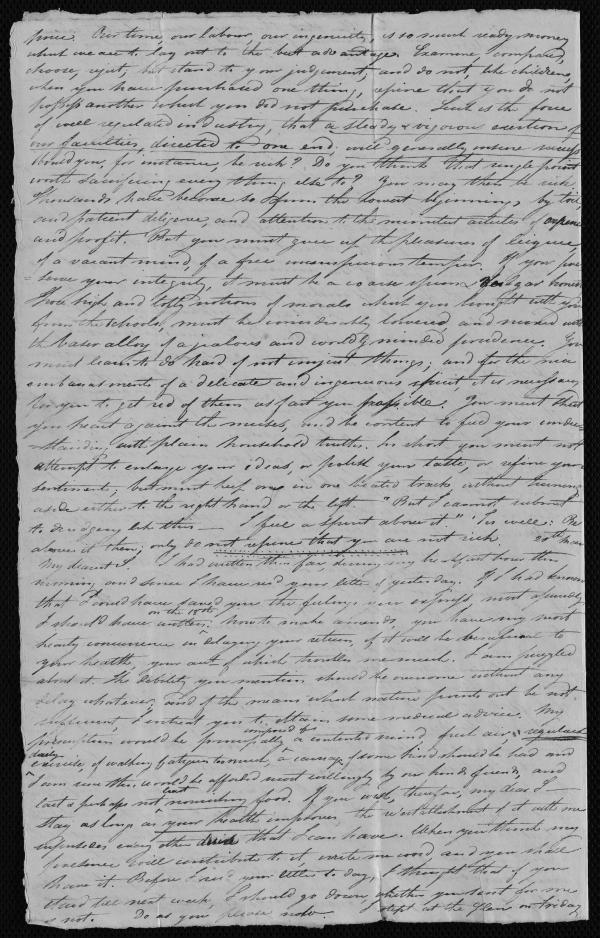 price. Our time, our labour, our ingenuity, is so much ready money
what we are to lay out to the best advantage. Examine, compare,
choose, reject; but stand to your judgement, and do not, like children,
when you have purchased one thing, repine that you do not
possess another which you did not purchase. Such is the force
of well regulated industry, that a steady & vigorous exertion of
our faculties, directed to one end, will generally insure success
Would you, for instance, be rich? Do you think that single point
worth sacrificing every thing else to? You may then be rich
Thousands have become so from the lowest beginnings by toil
and patient diligence, and attention to the minutest articles of expence
and profit. But you must give up the pleasures of leisure,
of a vacant mind, of a free unsuspicious temper. If you pre
-serve your integrity, it must be a coarse spun & vulgar honesty
Those high and lofty notions of morals which you brought with you
from the schools, must be considerably lowered, and mixed with
the baser alloy of a jealous and worldly minded prudence. You
must learn to do hard if not unjust things; and for the nice
embarrasments of a delicate and ingenuous spirit, it is necessary
for you to get rid of them as fast you possible. You must shut
you heart against the muses, and be content to feed your under
-standing with plain household truths. In short you must not
attempt to enlarge your ideas, or polish your taste, or refine your
sentiments; but must keep on in one beated track without turning
aside either to the right hand or the left. "But I cannot submit
to drudgery like this — I feel a spirit above it." 'Tis well: Be
above it then; only do not repine that you are not rich. 20th
My dearest I had written thus far during my breakfast hour this
morning and since I have rec'd your letter of yesterday. If I had known
that I could have saved you the feelings you express most assuredly
I should have written on the 18th. Now to make amends, you have my most
hearty concurrence in delaying your return, if it will be beneficial to
your health, your acct of which troubles me much. I am puzzled
about it. The debility you mention should be overcome without any
delay whatever, and if the means which nature points out be not
sufficient, I intreat you to obtain some medical advice. My
prescription would be principally composed of a contented mind fresh air, & regular
daily exercise, if walking fatigues too much, a carriage of some kind should be had and
I am sure this would be afforded most willingly by our kind friends, and
last & perhaps not least nourishing food. If you wish, therefore, my dear I
stay as long as your health improves, the re-establishment of it with me
supersedes every other that I can have. When you think my
presence will contribute to it, write me word and you shall
have it. Before I rec'd your letter to day, I thought that if you
staid till next week, I should go down whether you sent for me
or not. Do as you please now. I slept at the Glens on Friday